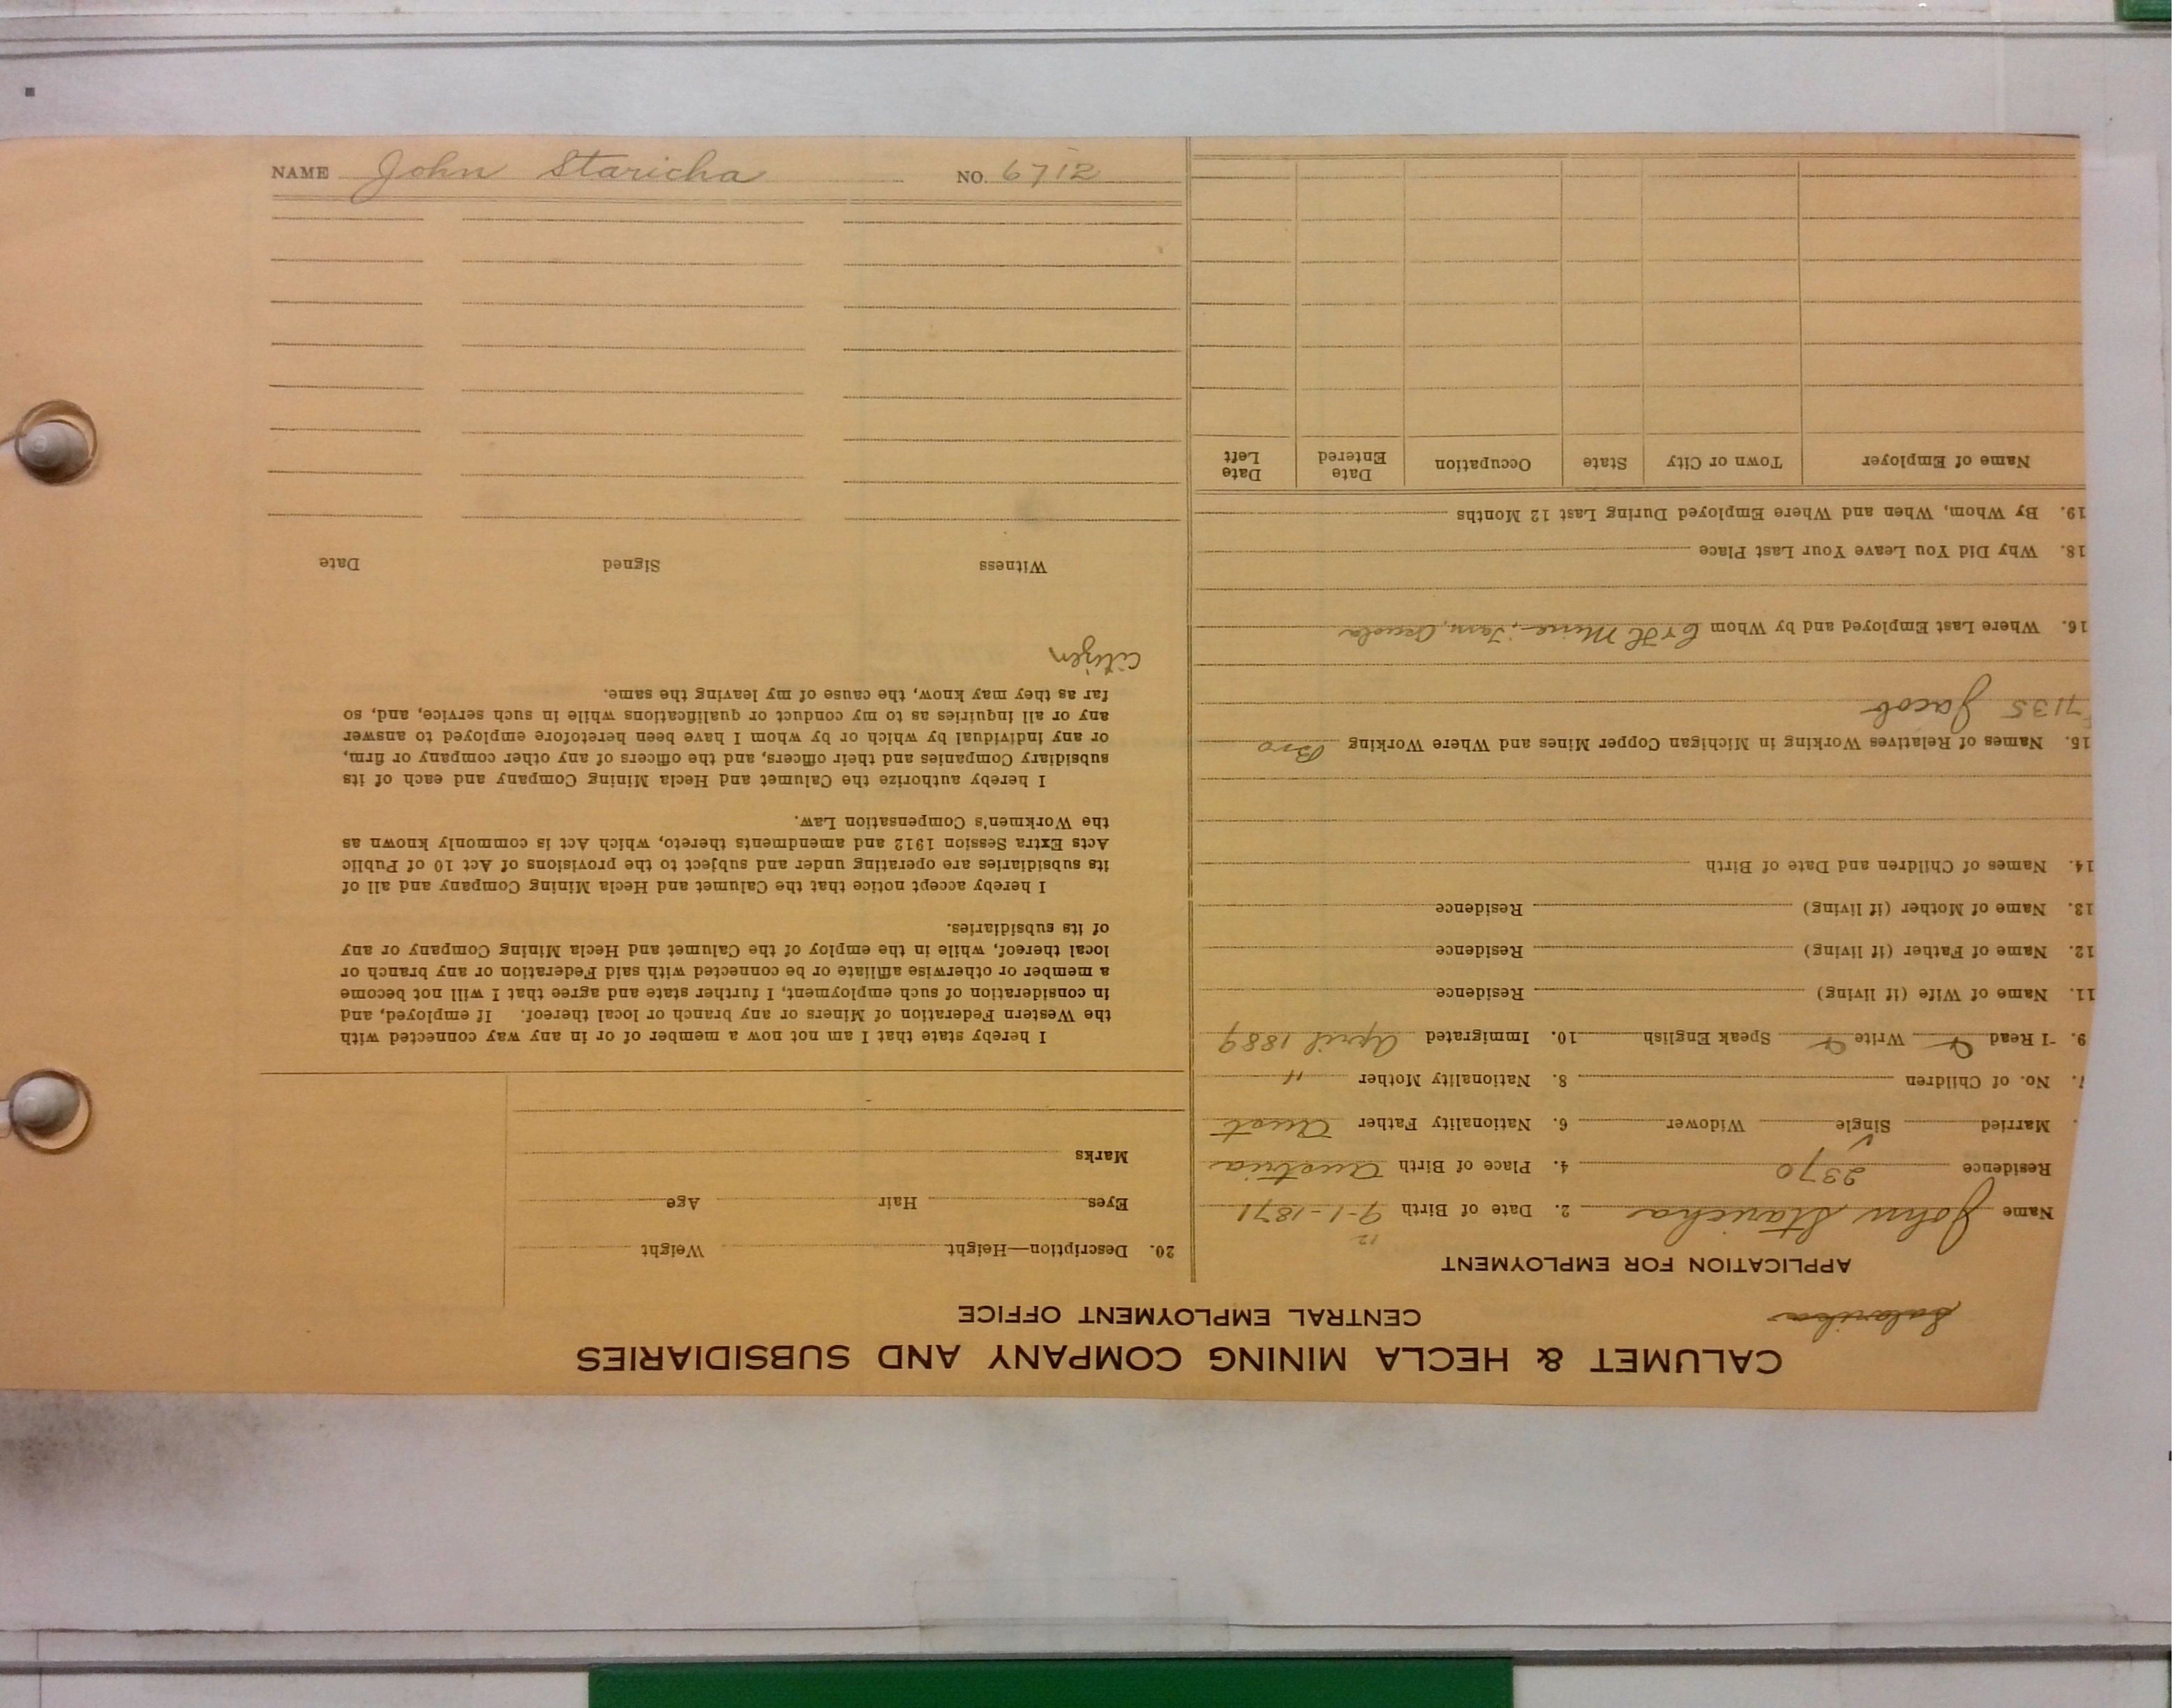 CALUMET & HECLA MINING COMPANY AND SUBSIDIARIES
CENTRAL EMPLOYMENT OFFICE
APPLICATION FOR EMPLOYMENT
Name John Staricha 2. Date of Birth 9-1-1871
12
Residence 2370 4. Place of Birth Austria
Married Single ✓ Widower 6. Nationality Father Aust
7. No. of Children 8. Nationality Mother "
9. I Read Write Speak English 10. Immigrated April 1889
11. Name of Wife (if living) Residence
12. Name of Father (if living) Residence
13. Name of Mother (if living) Residence
14. Names of Children and Date of Birth
15. Names of Relatives Working in Michigan Copper Mines and Where Working Bro
7135 Jacob
16. Where Last Employed and by Whom C & H Mine, Tam, Osceola
18. Why Did You Leave Your Last Place
19. By Whom, When and Where Employed During Last 12 Months
Name of Employer Town or City State Occupation Date Entered Date Left
20. Description—Height Weight
Eyes Hair Age
Marks
I hereby state that I am not now a member of or in any way connected with
the Western Federation of Miners or any branch or local thereof. If employed, and
in consideration of such employment, I further state and agree that I will not become
a member or otherwise affiliate or be connected with said Federation or any branch or
local thereof, while in the employ of the Calumet and Hecla Mining Company or any
of its subsidiaries.
I hereby accept notice that the Calumet and Hecla Mining Company and all of
its subsidiaries are operating under and subject to the provisions of Act 10 of Public
Acts Extra Session 1912 and amendments thereto, which Act is commonly known as
the Workmen's Compensation Law.
I hereby authorize the Calumet and Hecla Mining Company and each of its
subsidiary Companies and their officers, and the officers of any other company or firm,
or any individual by which or by whom I have been heretofore employed to answer
any or all inquiries as to my conduct or qualifications while in such service, and, so
far as they may know, the cause of my leaving the same.
Citizen
Witness Signed Date
NAME John Staricha NO. 6712